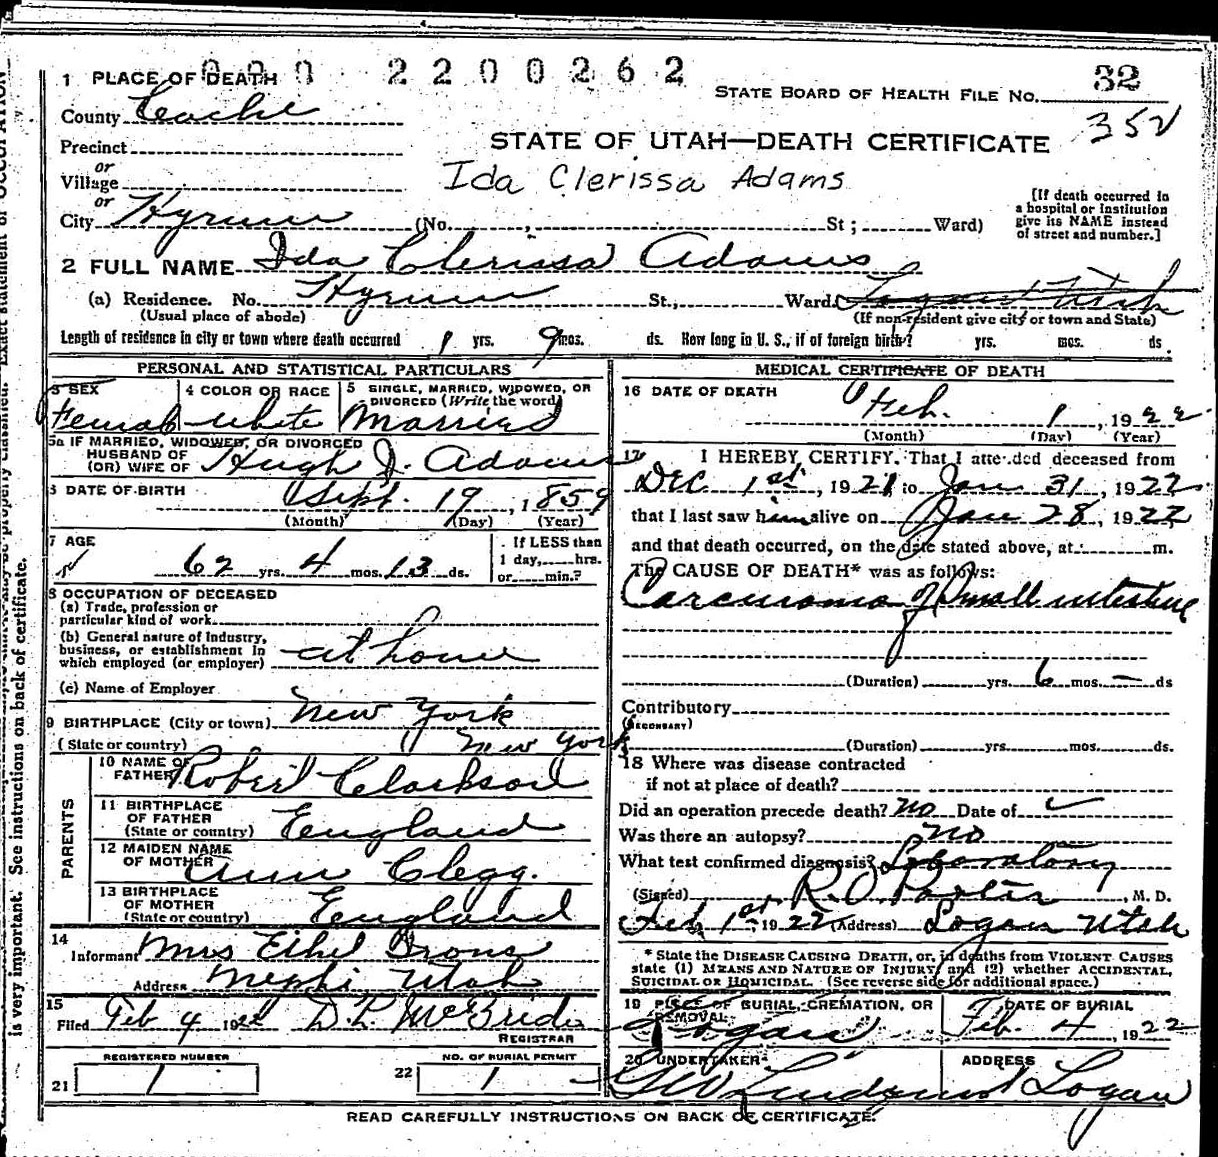 000 2200262
1 PLACE OF DEATH
STATE BOARD OF HEALTH FILE No. 32
County Cache
352
STATE OF UTAH—DEATH CERTIFICATE
Precinct
or
Village
Ida Clerissa Adams
or
City Hyrum (No. , St ; Ward)
[If death occurred in
a hospital or institution
give its NAME instead
of street and number.]
2 FULL NAME Ida Clerissa Adams
(a) Residence. No. Hyrum St., Ward. Logan Utah
(Usual place of abode)
(If non-resident give city or town and State)
Length of residence in city or town where death occurred 1 yrs. 9 mos. ds. How long in U. S., if of foreign birth? yrs. mos. ds.
PERSONAL AND STATISTICAL PARTICULARS
3 SEX
Female
4 COLOR OR RACE
White
5 SINGLE, MARRIED, WIDOWED, OR
DIVORCED (Write the word)
Married
5a IF MARRIED, WIDOWED, OR DIVORCED
HUSBAND OF
(OR) WIFE OF Hugh J. Adams
6 DATE OF BIRTH Sept. 19, 1859
(Month) (Day) (Year)
7 AGE
62 yrs. 4 mos. 13 ds.
If LESS than
1 day, hrs.
or min.?
8 OCCUPATION OF DECEASED
(a) Trade, profession or
particular kind of work
(b) General nature of Industry,
business, or establishment in
which employed (or employer) at home
(c) Name of Employer
9 BIRTHPLACE (City or town) New York
(State or country) New York
PARENTS
10 NAME OF
FATHER Robert Clarkson
11 BIRTHPLACE
OF FATHER
(State or country) England
12 MAIDEN NAME
OF MOTHER Ann Clegg.
13 BIRTHPLACE
OF MOTHER
(State or country) England
14
Informant Mrs Ethel
Address Nephi Utah
15
Filed Feb 4 1922 D. L. McBride
REGISTRAR
REGISTERED NUMBER
21 1
NO. OF BURIAL PERMIT
22 1
MEDICAL CERTIFICATE OF DEATH
16 DATE OF DEATH
Feb. 1, 1922
(Month) (Day) (Year)
17 I HEREBY CERTIFY, That I attended deceased from
Dec 1st, 1921 to Jan 31, 1922
that I last saw him alive on Jan 28, 1922
and that death occurred, on the date stated above, at m.
The CAUSE OF DEATH* was as follows:
Carcinoma of Small intestine
(Duration) yrs. 6 mos. — ds
Contributory
(SECONDARY)
(Duration) yrs. mos. ds.
18 Where was disease contracted
if not at place of death?
Did an operation precede death? No Date of
Was there an autopsy? No
What test confirmed diagnosis? Laboratory
(Signed) R. O. Porter, M. D.
Feb 1st 1922 (Address) Logan Utah
* State the DISEASE CAUSING DEATH, or, in deaths from VIOLENT CAUSES
state (1) MEANS AND NATURE OF INJURY, and (2) whether ACCIDENTAL,
SUICIDAL OR HOMICIDAL. (See reverse side for additional space.)
19 PLACE OF BURIAL, CREMATION, OR
REMOVAL
Logan
DATE OF BURIAL
Feb. 4, 1922
20 UNDERTAKER
G W Lindquist
ADDRESS
Logan
READ CAREFULLY INSTRUCTIONS ON BACK OF CERTIFICATE.
is very important. See instructions on back of certificate.